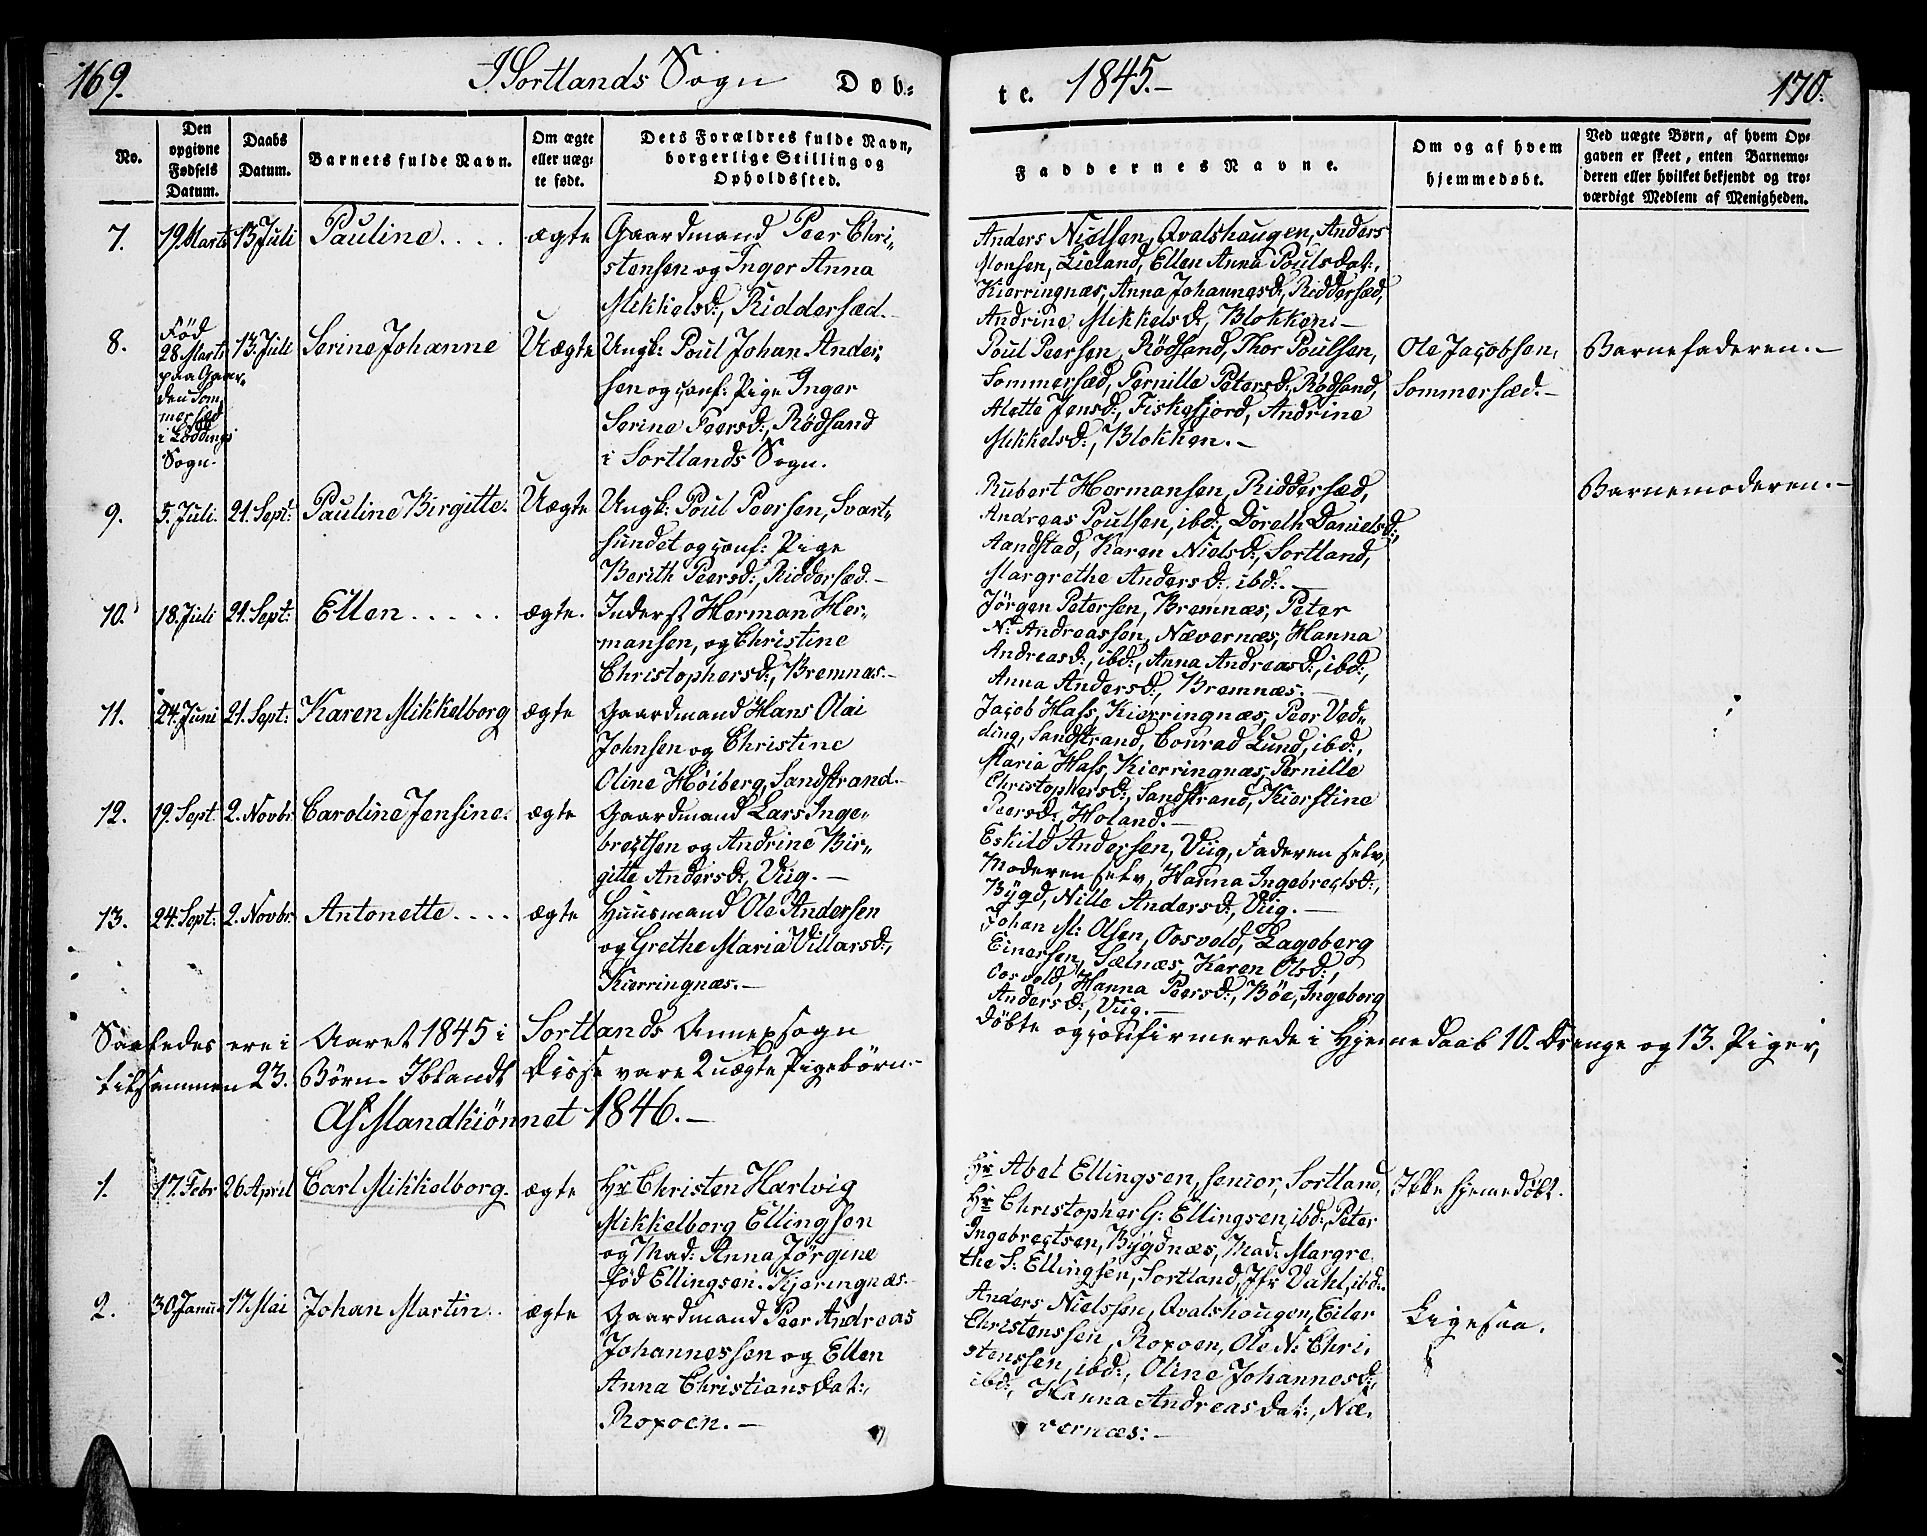 169.
I Sortlands Sogn
Døb-
te.
1845.-
170.
No.
Den opgivne Fødsels Datum.
Daabs Datum.
Barnets fulde Navn.
Om ægte eller uæg- te født.
Dets Forældres fulde Navn, borgerlige Stilling og Opholdssted.
Faddernes Navne.
Om og af hvem hjemmedøbt.
Ved uægte Børn, af hvem Op- gaven er skeet, enten Barnemo- deren eller hvilket bekjendt og tro- værdige Medlem af Menigheden.
7.
19. Marts
13. Juli
Pauline....
ægte
Gaardmand Peer Chri-
stensen og Inger Anna
Mikkelsd:, Riddersæd.-
Anders Nielsen, Qvalshaugen, Anders
Monsen, Lieland, Ellen Anna Poulsdat:,
Kierringnæs, Anna Johannesd:, Riddersæd,
Andrine Mikkelsd:, Blokken:-
8.
Fød
28 Marts
paa Gaar-
den Som-
mersæd
i Løddings
Sogn.
13. Juli
Serine Johanne
Uægte
Ungk: Poul Johan Ander-
sen og conf: Pige Inger
Serine Peersd:, Rödsand
i Sortlands Sogn.
Poul Peersen, Rödsand, Thor Poulsen,
Sommersæd, Pernille Petersd:, Rödsand,
Alette Jensd:, Fiskefjord, Andrine
Mikkelsd:, Blokken.-
Ole Jacobsen,
Sommersæd.-
Barnefaderen.-
9.
5. Juli.
21. Sept:
Pauline Birgitte.
Uægte
Ungk: Poul Peersen, Svart-
sundet og conf: Pige
Berith Peersd:, Riddersæd.-
Rubert Hermansen, Riddersæd,
Andreas Poulsen, ibd:, Doreth Danielsd:,
Aandstad, Karen Nielsd:, Sortland,
Margrethe Andersd:, ibd:.-
Barnemoderen.-
10.
18. Juli
21. Sept:
Ellen.....
ægte.
Inderst Herman Her-
mansen, og Christine
Christophersd:, Bremnæs.-
Jørgen Petersen, Bremnæs, Peter
N: Andreassen, Nævernæs, Hanna
Andreasd:, ibd:, Anna Andreasd:, ibd:,
Anna Andersd:, Bremnæs.-
11.
24. Juni
21. Sept:
Karen Mikkelborg
ægte
Gaardmand Hans Olai
Johnsen og Christine
Oline Høiberg, Sandstrand.-
Jacob Hass, Kierringnæs, Peer Ved-
ding, Sandstrand, Conrad Lund, ibd:,
Maria Hass, Kierringnæs, Pernille
Christophersd:, Sandstrand, Kierstine
Peersd:, Holand.-
12.
19. Sept
2. Novbr.
Caroline Jensine.
ægte
Gaardmand Lars Inge-
bregtsen og Andrine Bir-
gitte Andersd:, Viig.-
Eskild Andersen, Viig, Faderen selv,
Moderen selv, Hanna Ingebregtsd:,
Bÿgd, Nille Andersd:, Viig.-
13.
24. Sept:
2. Novbr.
Antonette....
ægte
Huusmand Ole Andersen
og Grethe Maria Villarsd:,
Kierringnæs.-
Johan M: Olsen, Oosvold, Ragoberg
Einersen, Sælnæs, Karen Olsd:,
Oosvold, Hanna Peersd:, Böe, Ingeborg
Andersd:, Viig.-
Saaledes ere i Aaret 1845 i Sortlands Annexsogn døbte og confirmerede i Hjemedaab 10. Drenge og 13. Piger,
tilsammen 23. Børn. Iblandt disse vare 2 uægte Pigebörn.-
Af Mandkiönnet 1846.-
1.
17. Febr
26 April
Carl Mikkelborg.
ægte
Hr Christen Hartvig
Mikkelborg Ellingsen
og Mad: Anna Jørgine
fød Ellingsen. Kjeringnæs.-
Hr Abel Ellingsen, senior, Sortland,
Hr Christopher G: Ellingsen, ibd:, Peter
Ingebregtsen, Bÿgdnæs, Mad: Margre-
the S: Ellingsen, Sortland, Jfr Dahl, ibd:.
Ikke hjemedöbt.
2.
30. Januar
17. Mai
Johan Martin..
ægte
Gaardmand Peer Andreas
Johannessen og Ellen
Anna Christiansdat:,
Roxoen.-
Anders Nielssen, Qvalshougen, Eiler
Christenssen, Roxoen, Ole N: Chri-
stenssen, ibd:, Oline Johannesd:,
ibd:, Hanna Andreasdat:, Næ-
vernæs:-
Ligesaa.